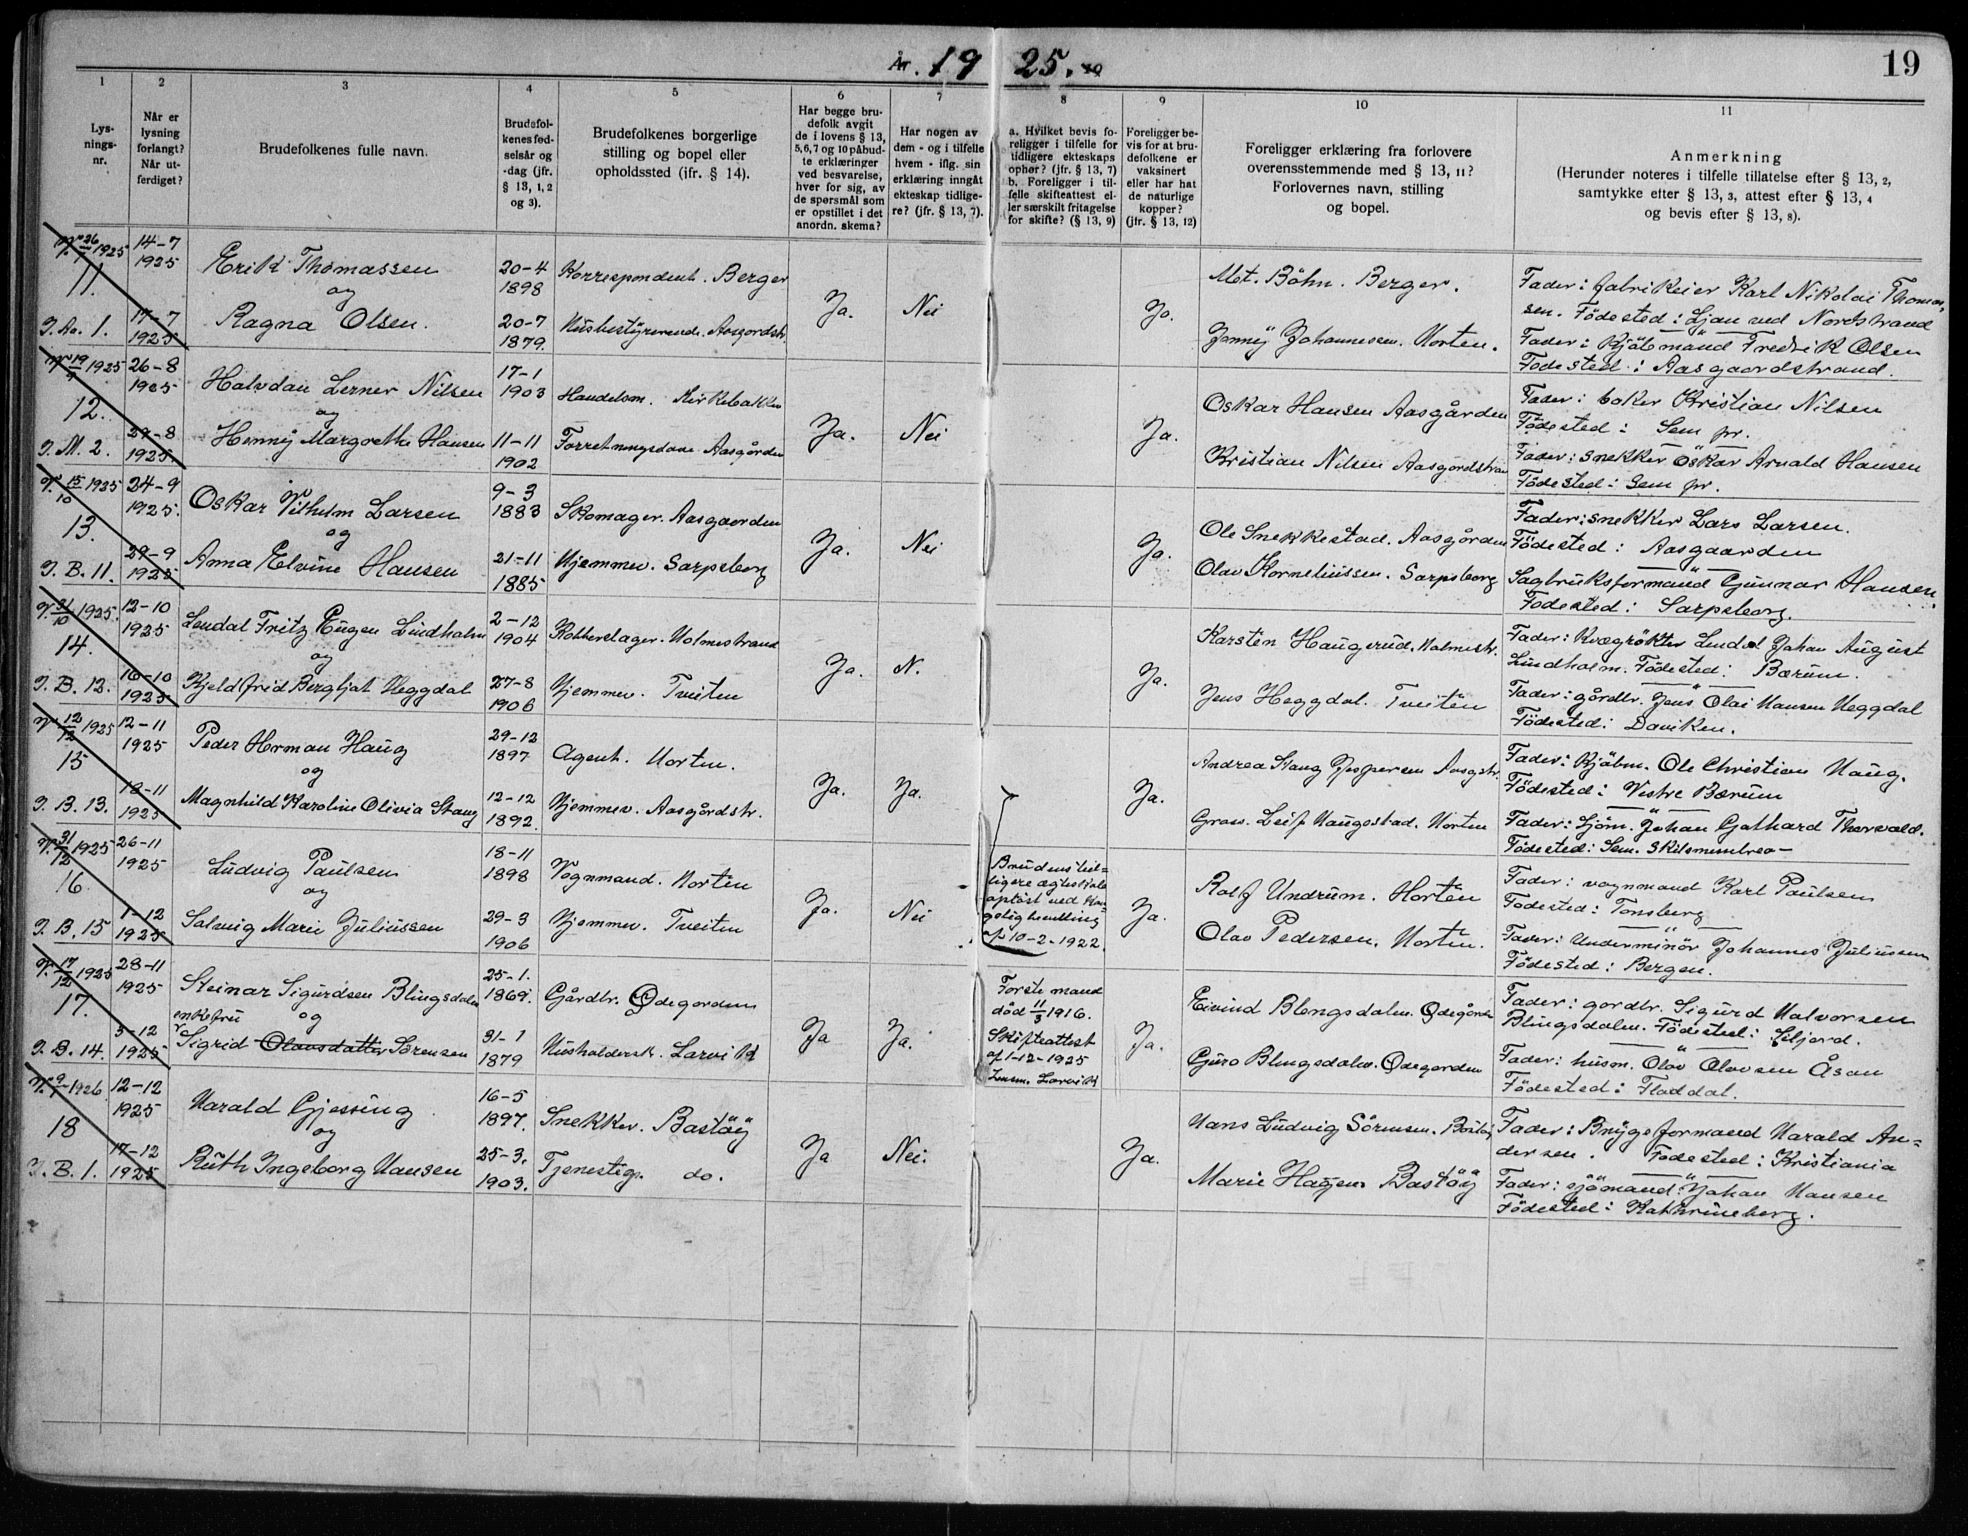 År. 1925. 19
19
1 2 3 4 5 6 7 8 9 10 11
Lys-
nings-
nr.
Når er
lysning
forlangt?
Når ut-
ferdiget?
Brudefolkenes fulle navn.
Brudefol-
kenes fød-
selsår og
-dag (jfr.
§ 13, 1, 2
og 3).
Brudefolkenes borgerlige
stilling og bopel eller
opholdssted (jfr. § 14).
Har begge bru-
defolk avgit
de i lovens § 13,
5,6,7 og 10 påbud-
te erklæringer
ved besvarelse,
hver for sig, av
de spørsmål som
er opstillet i det
anordn. skema?
Har nogen av
dem - og i tilfelle
hvem - iflg. sin
erklæring inngåt
ekteskap tidlige-
re? (jfr. § 13, 7).
a. Hvilket bevis fo-
religger i tilfelle for
tidligere ekteskaps
ophør? (jfr. § 13, 7)
b. Foreligger i til-
felle skifteattest el-
ler særskilt fritagelse
for skifte? (§ 13, 9)
Foreligger be-
vis for at bru-
defolkene er
vaksinert
eller har hat
de naturlige
kopper?
(jfr. § 13, 12)
Foreligger erklæring fra forlovere
overensstemmende med § 13, 11?
Forlovernes navn, stilling
og bopel.
Anmerkning
(Herunder noteres i tilfelle tillatelse efter § 13, 2,
samtykke efter § 13, 3, attest efter § 13, 4
og bevis efter § 13, 8).
V. 26/7 1925
11.
J. Aa. 1.
14-7
1925
17-7
1925
Erik Thomassen
og
Ragna Olsen.
20-4
1898
20-7
1879.
Korrespondent. Berger
Husbestyrerinde. Aasgordstr.
Ja.
Nei
Ja.
Met. Böhn. Berger.
Jenny Johannessen. Horten.
Fader: fabrikeier Karl Nikolai Thomas-
sen. Födested: Ljan ved Nordstrand
Fader: Kjöbmand Fredrik Olsen
Födested: Aasgaardstrand.
V. 19/9 1925
12.
J. M. 2.
26-8
1925
29-8
1925.
Halvdan Lerner Nilsen
og
Henny Margrethe Hansen
17-1
1903
11-11
1902
Handelsm. Kirkebakken
Forretningsdame Aasgården
Ja.
Nei
Ja.
Oskar Hansen Aasgården
Kristian Nilsen Aasgordstran
Fader: baker Kristian Nilsen
Födested: Sem pr.
Fader: snekker Oskar Arnald Hansen
Födested: Sem pr.
V. 15/10 1925
13.
J. B. 11.
24-9
1925.
29-9
1925
Oskar Vilhelm Larsen
og
Anna Elvine Hansen
9-3
1883
21-11
1885
Skomager. Aasgaarden
Hjemmev. Sarpsborg
Ja.
Nei
Ja.
Ole Snekkestad. Aasgården
Olav Korneliussen. Sarpsborg
Fader: snekker Lars Larsen.
Födested: Aasgaarden
Sagbruksformand Gunnar Hansen.
Födested: Sarpsborg.
V. 31/10 1925.
14.
J. B. 12.
12-10
1925
16-10
1925
Lendal Fritz Eugen Lindholm
og
Kjeldfrid Bergljot Heggdal
2-12
1904
27-8
1906
Kobberslager. Holmestrand
Hjemmev. Tveiten
Ja.
N.
Ja.
Karsten Haugerud. Holmestr.
Jens Heggdal. Tveiten
Fader: Kvægrökter Lendal Johan August
Lindholm. Födested: Bærum.
Fader: gårdbr. Jens Olai Hansen Heggdal
Födested: Daviken.
V. 12/12 1925
15
J. B. 13.
12-11
1925
18-11
1925
Peder Herman Haug
og
Magnhild Karoline Olivia Stang
29-12
1897
12-12
1892.
Agent. Horten.
Hjemmev. Aasgårdstr.
Ja.
Ja.
Ja.
Andrea Stang Jespersen Aasgstr.
Grav. Leif Haugestad. Horten
Fader: Kjöbm. Ole Christian Haug.
Födested: Vestre Bærum
Fader: Sjöm. Johan Gothard Thorvald.
Födested: Sem.
V. 31/12 1925
16
J. B. 15
26-11
1925
1-12
1925
Ludvig Paulsen
og
Solveig Marie Juliussen
18-11
1898
29-3
1906
Vognmand. Horten
Hjemmev. Tveiten
Ja.
Nei
Brudens tid-
ligere ægteskab
oplöst ved Kon-
gelig bevilling
af 10-2-1922.
Ja.
Rolf Undrum. Horten
Olav Pedersen. Horten.
Fader: vognmand Karl Paulsen
Födested: Tönsberg
Fader: Underminör Johannes Juliussen
Födested: Bergen.
V. 17/12 1925
17.
J. B. 14.
28-11
1925
3-12
1925
Steinar Sigurdsen Blingsdalen
enkefru og
Sigrid Olavsdatter Sörensen
25-1.
1869.
31-1
1879
Gårdbr. Ødegorden
Husholdersk. Larvik
Ja
Ja.
Förste mand
död 11/3 1916.
Skifteattest
af 1-12-1925
Lensm. Larvik
Ja.
Eivind Blengsdalen. Ødegården
Guro Blingsdalen. Ødegorden
Fader: gordbr. Sigurd Halvorsen
Blingsdalen. Födested: Seljord.
Fader: husm. Olav Olavsen Åsan
Födested: Fladdal.
V. 9/1 1926
18
J. B. 1.
12-12
1925
17-12
1925
Harald Gjessing
og
Ruth Ingeborg Hansen
16-5
1897.
25-3.
1903.
Snekker. Bastöy
Tjenestig. do.
Ja
Nei.
Ja.
Hans Ludvig Sörensen. Bastöy
Marie Hagen Bastöy
Fader: Bryggeformand Harald An-
dersen. Födested: Kristiania
Fader: sjömand: Johan Hansen
Födested: Kathrineberg.